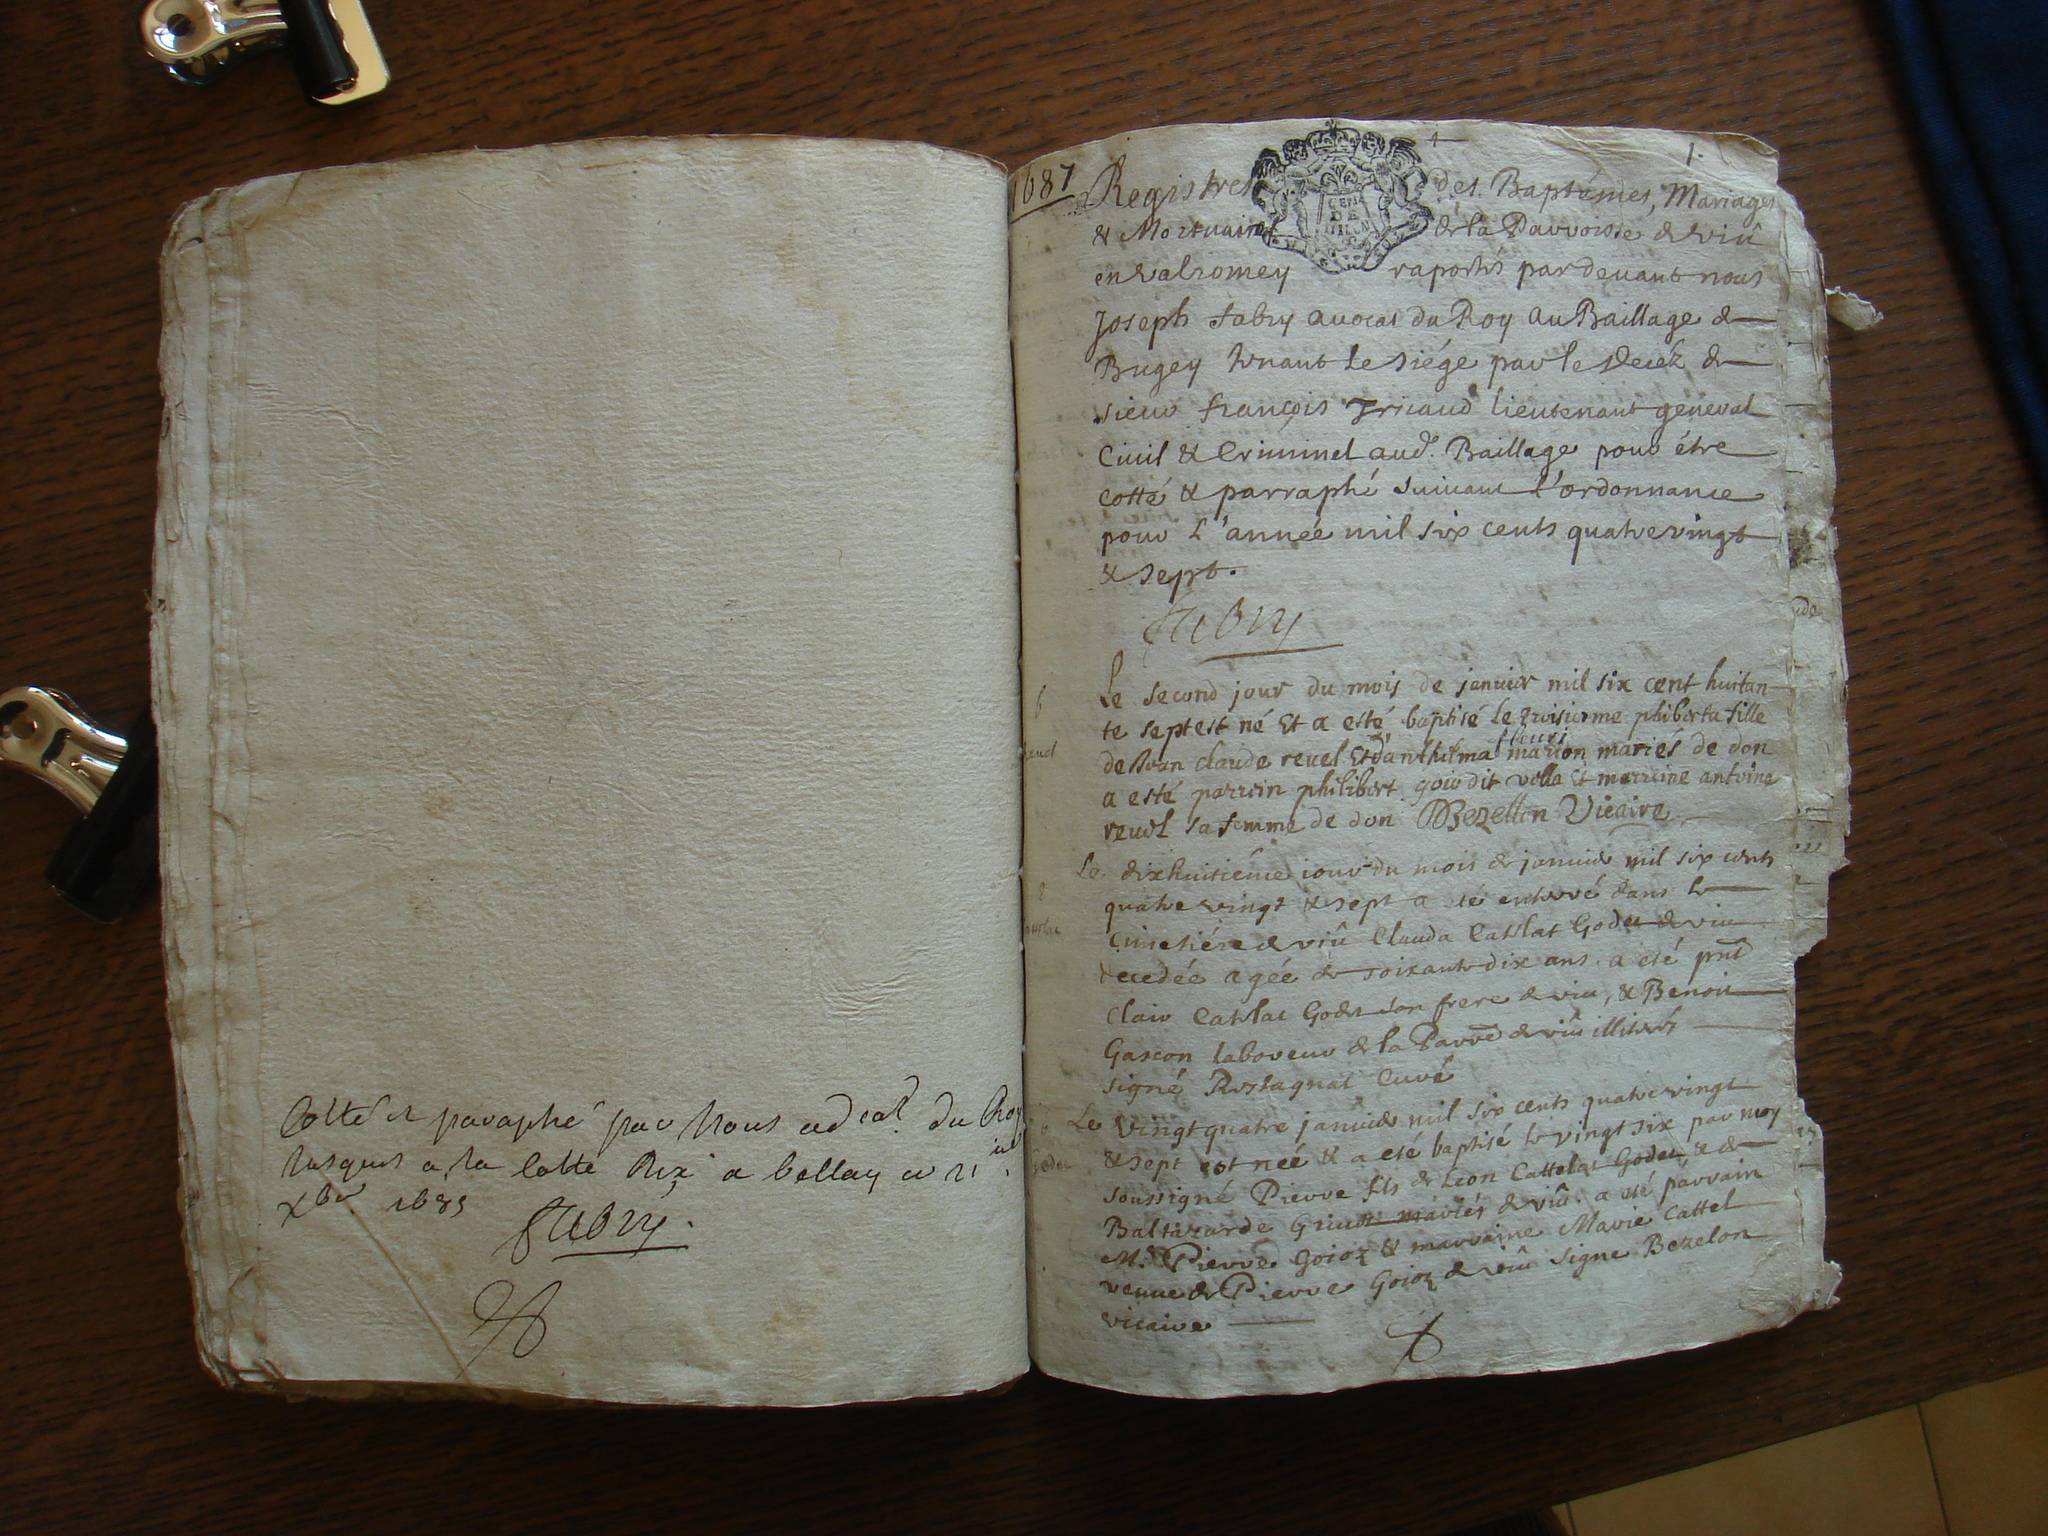 Cotté et paraphé par Nous adcat du Roy
Jusques a la Cotte Dix a bellay ce 21
xbre 1685
Fabry.
1687
1
1.
Registres des Baptémes, Mariages
& Mortuaires de la Parroisse de viû
en valromey raportés pardevant nous
Joseph fabry avocat du Roy au Baillage de
Bugey tenant le siége par le decéz de
sieur françois Tricaud lieutenant general
Civil & Criminel aud. Baillage pour étre
cotté & parraphé suivant l'ordonnance
pour l'année mil six cents quatre vingt
& sept.
Fabry
Le second jour du mois de janvier mil six cent huitan
te septest né Et a esté baptisé le troisieme philiberta fille
de claude revel Et d'anthelma fleuri marion mariés de don
a esté parrein philibert goio dit volla Et marraine antoine
revel sa femme de don Bezellon Vicaire
Le dixhuitiéme iour du mois de janvier mil six cents
quatre vingt & sept a été enterré dans le
Cimetiére de viû Clauda Cattelat Godet de viu
decedée agée de soixante dix ans. a eté pnt
Clair Cattelat Godet son frere de viu, & Benoit
Gascon laboreur de la Parre de viû illiterés
signé Rostagnat Curé
Le vingtquatre janvier mil six cents quatre vingt
& sept est née & a eté baptisé le vingt six par moy
soussigné Pierre fils de Leon Cattelat Godet & de
Baltazarde mariés de viû. a eté parrain
Mr. Pierre Goioz & marraine Marie Cattel
veuve de Pierre Goioz de viû signe Bezelon
vicaire